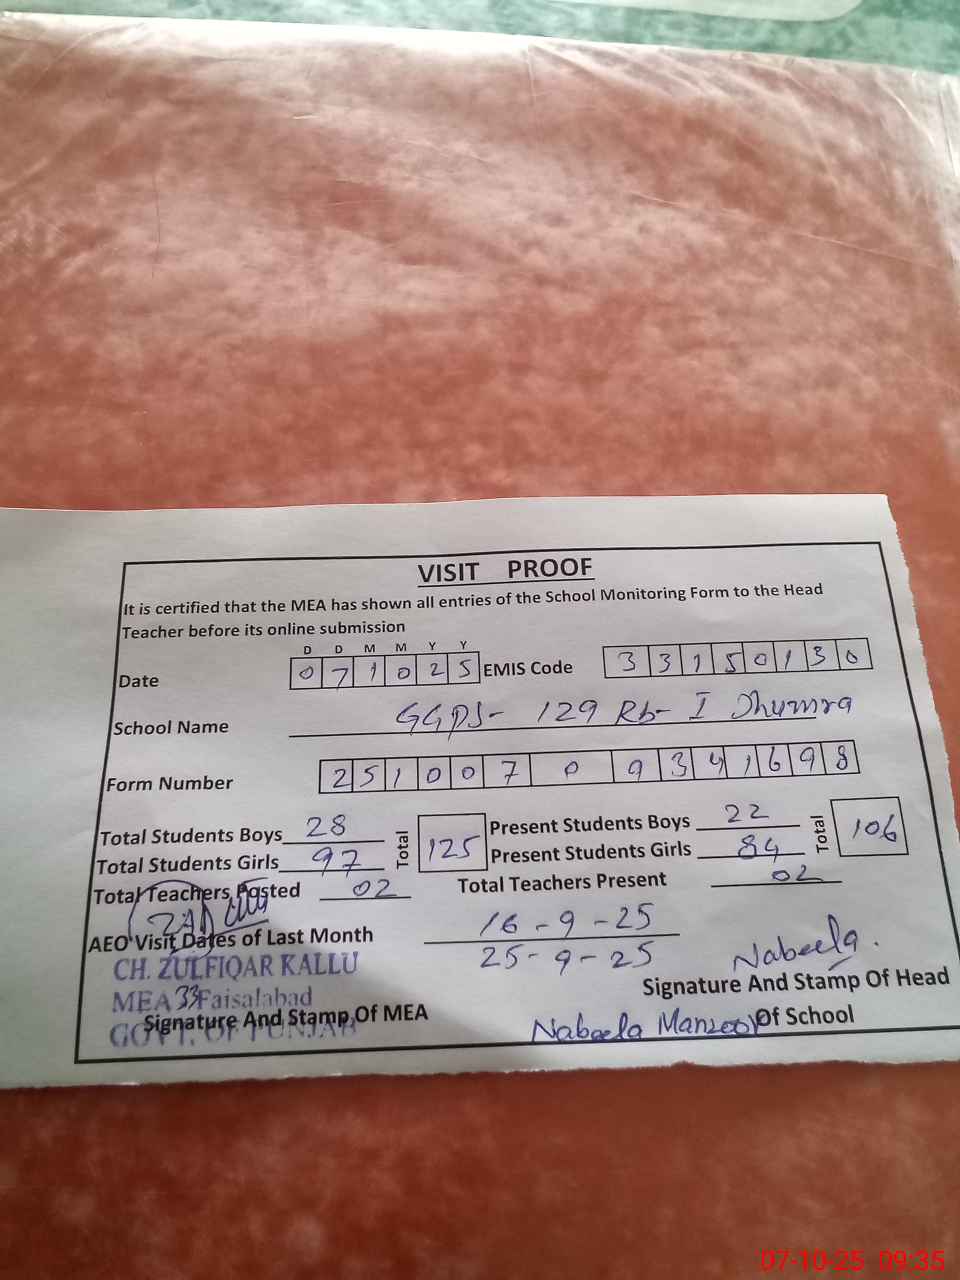 VISIT PROOF
It is certified that the MEA has shown all entries of the School Monitoring Form to the Head
Teacher before its online submission
D D M M Y Y
Date 0 7 1 0 2 5 EMIS Code 3 3 1 5 0 1 3 0
School Name GGPS- 129 Rb- I Dhumra
Form Number 2 5 1 0 0 7 0 9 3 4 1 6 9 8
Total Students Boys 28 Total 125 Present Students Boys 22 Total 106
Total Students Girls 97 Present Students Girls 84
Total Teachers Posted 02 Total Teachers Present 02
AEO Visit Dates of Last Month 16-9-25
25-9-25
Nabeela.
CH. ZULFIQAR KALLU
MEA 33 Faisalabad
GOVT. OF PUNJAB
Signature And Stamp Of MEA
Signature And Stamp Of Head
Nabeela Manzoor Of School
07-10-25 09:35